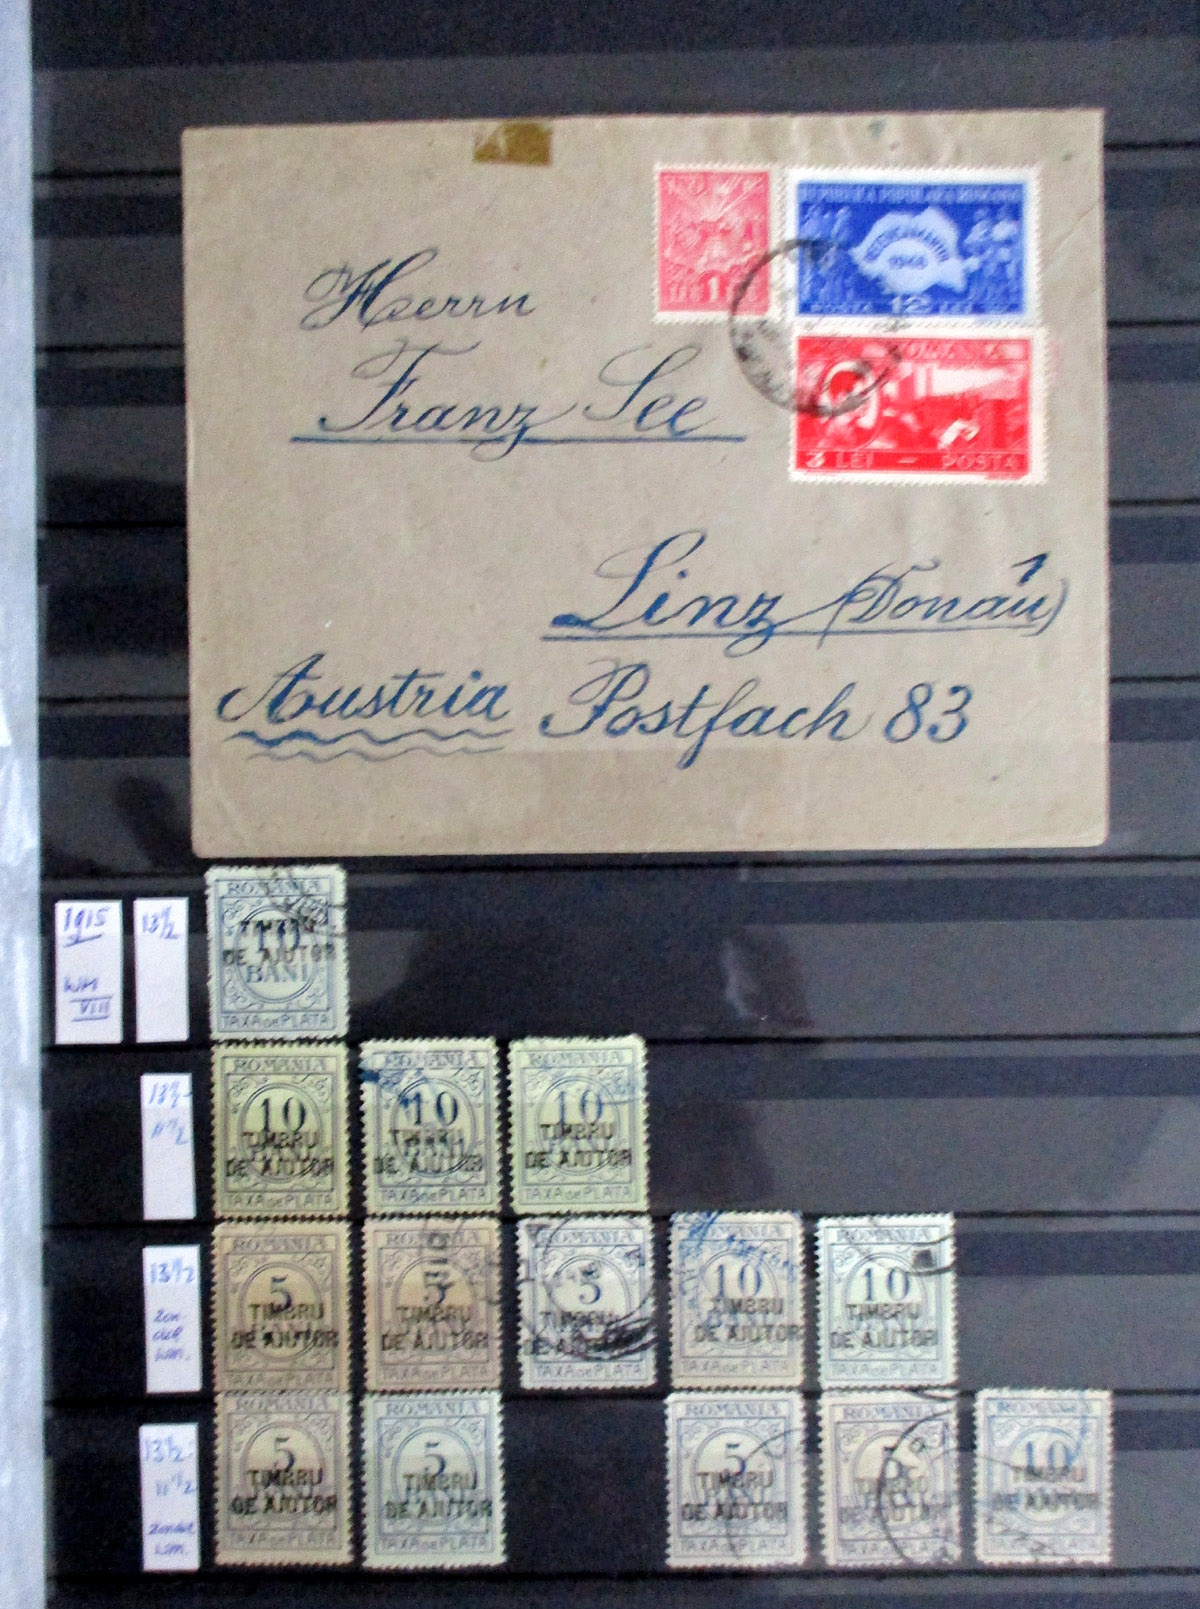 Herrn
Franz See
Linz (Donau)
Austria Postfach 83
1 LEU
REPUBLICA POPULARA ROMANA
1948
POSTA 12 LEI
ROMANIA
3 LEI - POSTA
1915
WM
VIII
13½
ROMANIA
10
TIMBRU
DE AJUTOR
BANI
TAXA DE PLATA
13½-
11½
ROMANIA
10
TIMBRU
BANI
DE AJUTOR
TAXA DE PLATA
ROMANIA
10
TIMBRU
BANI
DE AJUTOR
TAXA DE PLATA
ROMANIA
10
TIMBRU
BANI
DE AJUTOR
TAXA DE PLATA
13½
wm.
ROMANIA
5
TIMBRU
DE AJUTOR
TAXA DE PLATA
ROMANIA
5
TIMBRU
DE AJUTOR
TAXA DE PLATA
ROMANIA
5
TIMBRU
DE AJUTOR
TAXA DE PLATA
ROMANIA
10
TIMBRU
BANI
DE AJUTOR
TAXA DE PLATA
ROMANIA
10
TIMBRU
DE AJUTOR
TAXA DE PLATA
13½-
11½
wm.
ROMANIA
5
TIMBRU
DE AJUTOR
TAXA DE PLATA
ROMANIA
5
TIMBRU
DE AJUTOR
TAXA DE PLATA
ROMANIA
5
TIMBRU
DE AJUTOR
TAXA DE PLATA
ROMANIA
5
TIMBRU
DE AJUTOR
TAXA DE PLATA
ROMANIA
10
TIMBRU
DE AJUTOR
TAXA DE PLATA